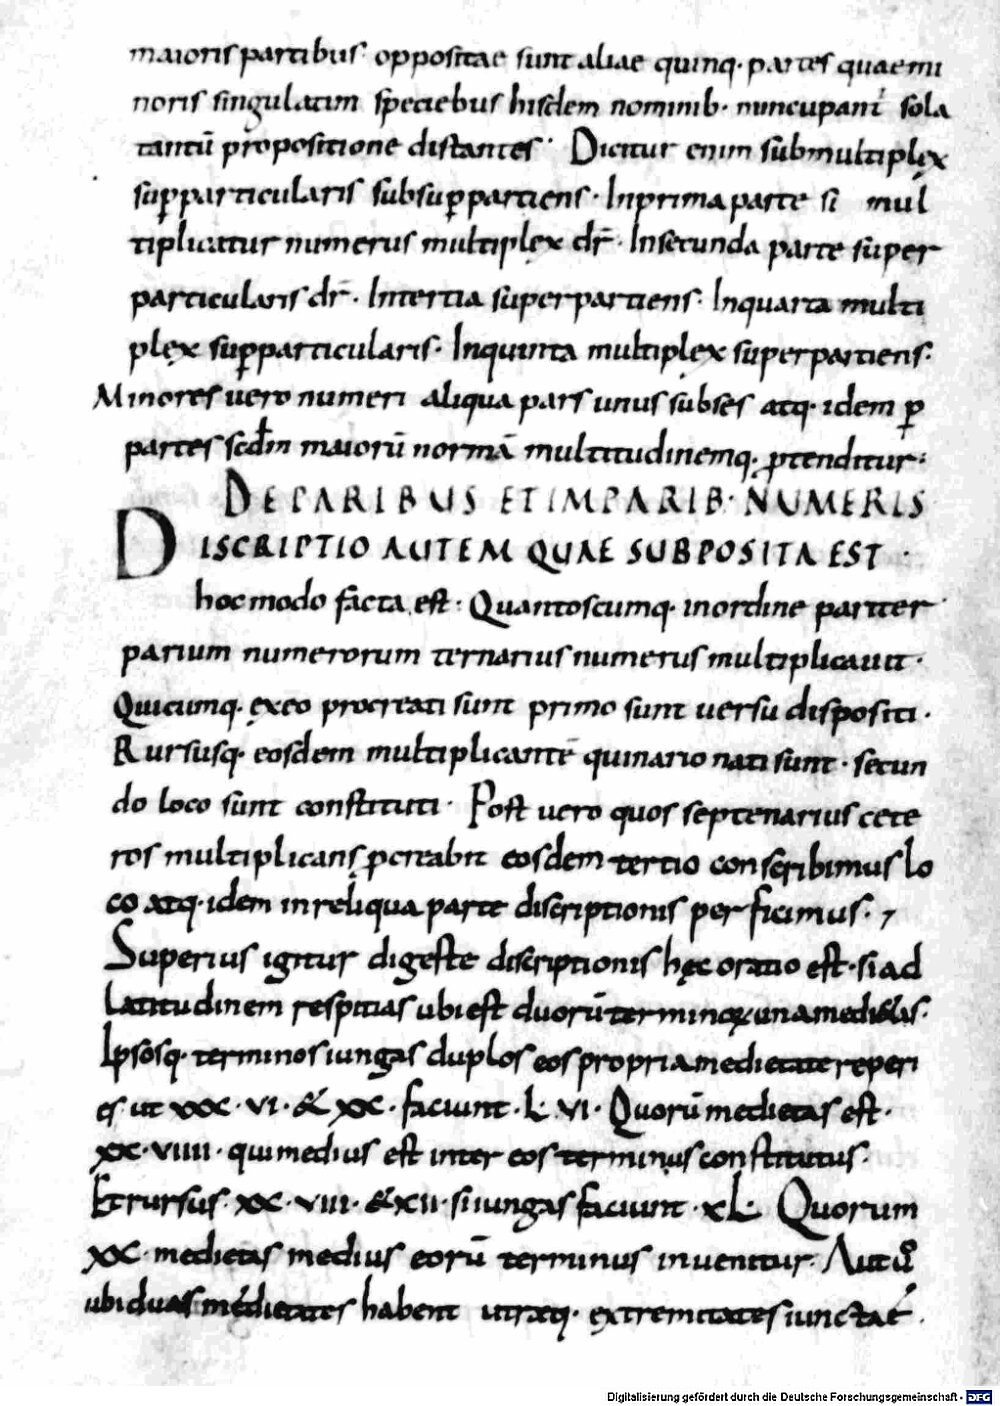 maioris partibus· oppositae sunt aliae quinq· partes quae mi
noris singulatim speciebus hisdem nominib· nuncupant̄ sola
tantū propositione distantes· Dicitur enim submultiplex
suꝑparticularis subsuꝑpartiens· Inprima parte si mul
tiplicatur numerus multiplex dr̄· Insecunda parte super
particularis dr̄· Intertia superpartiens· Inquarta multi
plex suꝑparticularis· Inquinta multiplex superpartiens·
Minores uero numeri aliqua pars unus subses atq· idem ꝑ
partes scdm maiorū normā multitudinemq· ꝓtenditur·
DE PARIBUS ET IMPARIB· NUMERIS
DISCRIPTIO AUTEM QUAE SUBPOSITA EST·
hoc modo facta est· Quantoscumq· inordine pariter
parium numerorum ternarius numerus multiplicauit·
Quicumq· ęxeo procreati sunt primo sunt uersu dispositi·
Rursusq· eosdem multiplicantē quinario nati sunt· secun
do loco sunt constituti· Post uero quos septenarius cete
ros multiplicans ꝓcreabit eosdem tertio conscribimus lo
co atq· idem inreliqua parte discriptionis perficimus·
Superius igitur digeste discriptionis hęc oratio est· si ad
Latitudinem respitias ubi est duorū terminoꝝ una medietas·
Ipsosq· terminos iungas duplos eos propria medietate reperi
es ut xxx·vi·& xx· faciunt·L·vi· Quorū medietas est·
xx·viiii· qui medius est inter eos terminus constitutus·
Et rursus·xx·viii·&xii· si iungas faciunt·xL· Quorum
xx· medietas medius eorū terminus inuenitur· Aut
ubi duas medietates habent utraeq· extremitates iunctae·
Digitalisierung gefördert durch die Deutsche Forschungsgemeinschaft - DFG